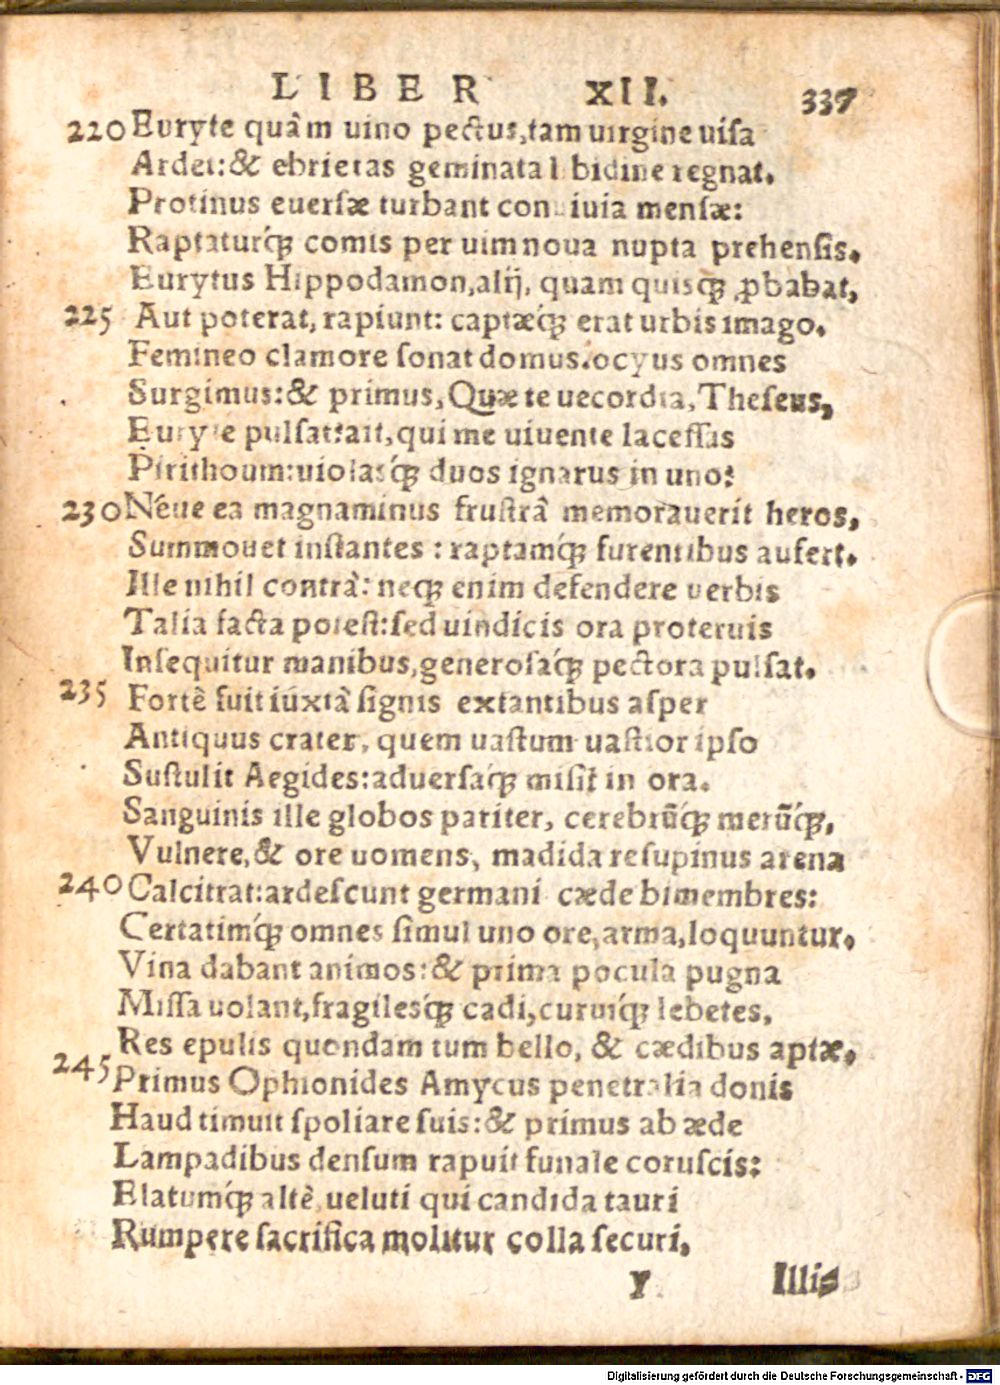 LIBER XII. 337
220 Euryte quâm uino pectus, tam uirgine uisa
Ardet: & ebrietas geminata libidine regnat.
Protinus euersæ turbant conuiuia mensæ:
Raptaturq́; comis per uim noua nupta prehensis.
Eurytus Hippodamon, alij, quam quisq; ꝓbabat,
225 Aut poterat, rapiunt: captæq́; erat urbis imago.
Femineo clamore sonat domus. ocyus omnes
Surgimus: & primus, Quæ te uecordia, Theseus,
Euryte pulsat: ait, qui me uiuente lacessas
Pirithoum: uiolasq́; duos ignarus in uno?
230 Néue ea magnaminus frustrâ memorauerit heros,
Summouet instantes: raptamq́; furentibus aufert.
Ille nihil contrà: neq; enim defendere uerbis
Talia facta potest: sed uindicis ora proteruis
Insequitur manibus, generosaq́; pectora pulsat.
235 Fortè fuit iuxtà signis extantibus asper
Antiquus crater, quem uastum uastior ipso
Sustulit Aegides: aduersaq́; misit in ora.
Sanguinis ille globos pariter, cerebrũq́; merũq́;,
Vulnere, & ore uomens, madida resupinus arena
240 Calcitrat: ardescunt germani cæde bimembres:
Certatimq́; omnes simul uno ore, arma, loquuntur.
Vina dabant animos: & prima pocula pugna
Missa uolant, fragilesq́; cadi, curuiq́; lebetes,
Res epulis quondam tum bello, & cædibus aptæ.
245 Primus Ophionides Amycus penetralia donis
Haud timuit spoliare suis: & primus ab æde
Lampadibus densum rapuit funale coruscis:
Elatumq́; altè ueluti qui candida tauri
Rumpere sacrifica molitur colla securi,
y Illis
Digitalisierung gefördert durch die Deutsche Forschungsgemeinschaft - DFG